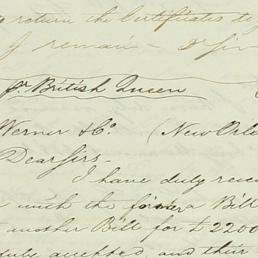 to return the Certificates
I remain
Pr. British Queen
Werner & Co. (New Orle
Dear Sirs-
I have duly rece
with the former Bill
another Bill for £2200
duly accepted and their